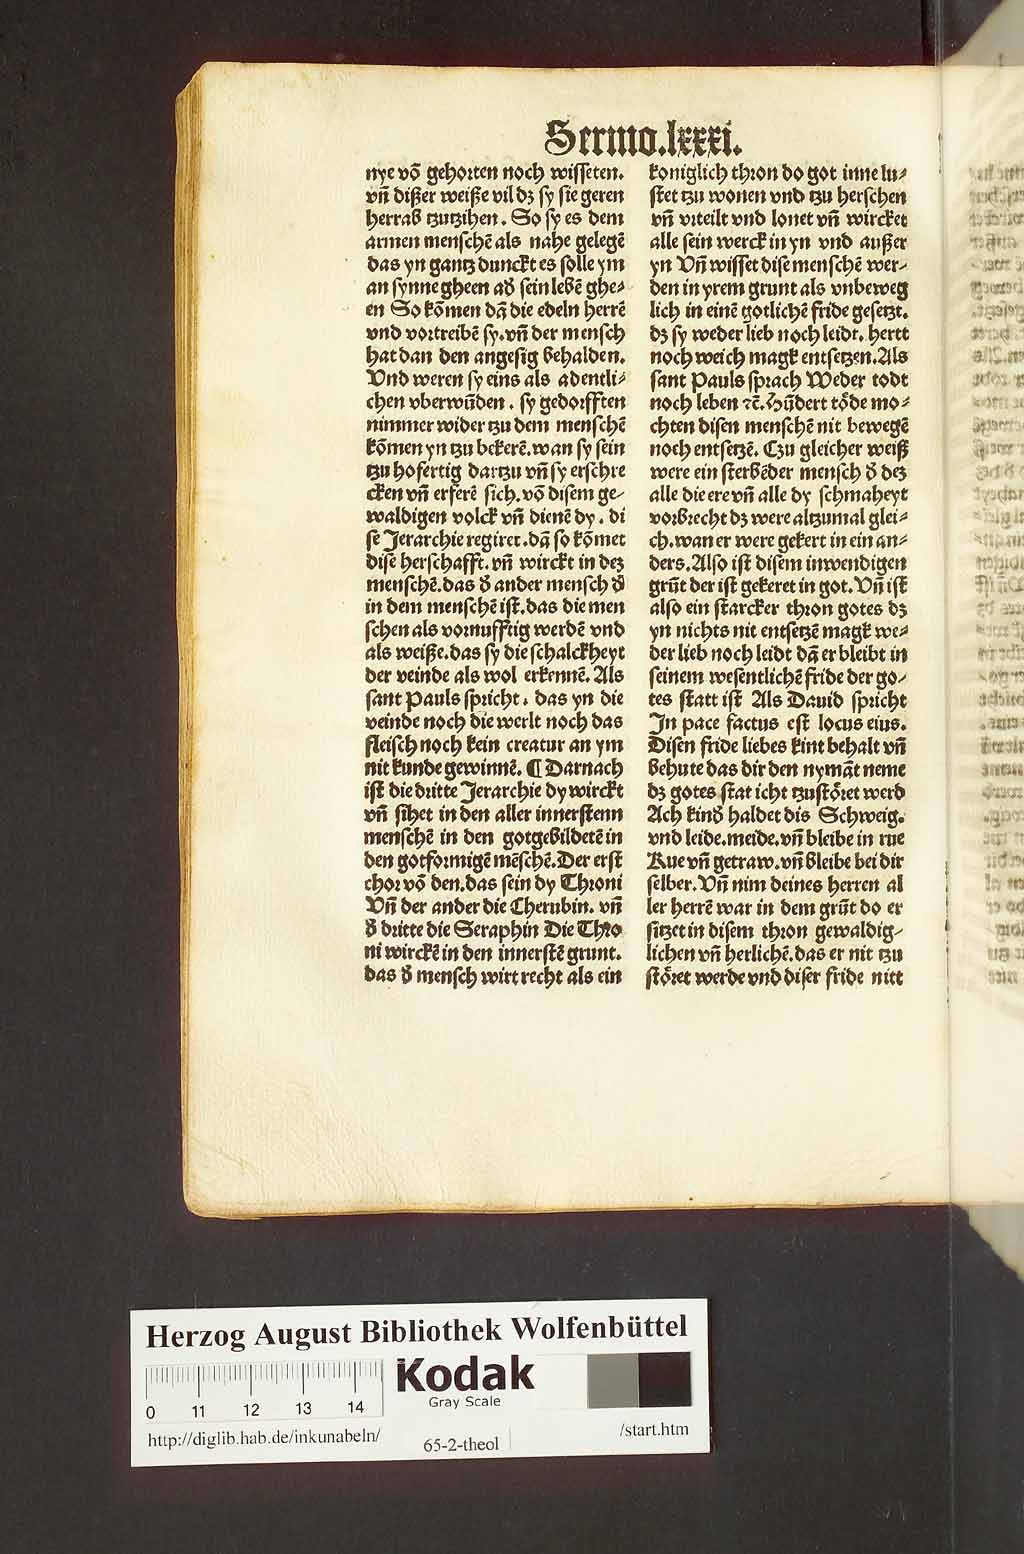 Sermo.lxxxi.
nye võ gehorten noch wisseten.
vñ dißer weiße vil dz sy sie geren
herrab tzutzihen. So sy es dem
armen menschē als nahe gelegē
das yn gantz dunckt es solle ym
an synne gheen ad̕ sein lebē ghe⸗
en So kōmen dā die edeln herrē
vnd vortreibē sy.vñ der mensch
hat dan den angesig behalden.
Vnd weren sy eins als adentli⸗
chen vberwūden. sy gedorfften
nimmer wider tzu dem menschē
kōmen yn tzu bekerē.wan sy sein
tzu hofertig dartzu vñ sy erschre
cken vñ erferē sich.võ disem ge⸗
waldigen volck vñ dienē dy. di
se Jerarchie regiret.dā so kōmet
dise herschafft.vñ wirckt in dez
menschē.das d̕ ander mensch d̕
in dem menschē ist.das die men
schen als vornufftig werdē vnd
als weiße.das sy die schalckheyt
der veinde als wol erkennē. Als
sant Pauls spricht. das yn die
veinde noch die werlt noch das
fleisch noch kein creatur an ym
nit kunde gewinnē. ¶ Darnach
ist die dritte Jerarchie dy wirckt
vñ sihet in den aller innerstenn
menschē in den gotgebildetē in
den gotformigē mēschē.Der erst
chor võ den.das sein dy Throni
Vñ der ander die Cherubin. vñ
d̕ dritte die Seraphin Die Thro
ni wirckē in den innerstē grunt.
das d̕ mensch wirt recht als ein
koniglich thron do got inne lu⸗
stet tzu wonen vnd tzu herschen
vñ vrteilt vnd lonet vñ wircket
alle sein werck in yn vnd außer
yn Vñ wisset dise menschē wer⸗
den in yrem grunt als vnbeweg
lich in einē gotlichē fride gesetzt.
dz sy weder lieb noch leidt. hertt
noch weich magk entsetzen.Als
sant Pauls sprach Weder todt
noch leben ⁊c̄.Hūdert tōde mo⸗
chten disen menschē nit bewegē
noch entsetzē. Czu gleicher weiß
were ein sterbēder mensch d̕ dez
alle die ere vñ alle dy schmaheyt
vorbrecht dz were altzumal glei⸗
ch.wan er were gekert in ein an⸗
ders.Also ist disem inwendigen
grūt der ist gekeret in got. Vñ ist
also ein starcker thron gotes dz
yn nichts nit entsetzē magk we⸗
der lieb noch leidt dā er bleibt in
seinem wesentlichē fride der go⸗
tes statt ist Als Dauid spricht
In pace factus est locus eius.
Disen fride liebes kint behalt vñ
behute das dir den nymāt neme
dz gotes stat icht tzustōret werd
Ach kind̕ haldet dis Schweig.
vnd leide.meide.vñ bleibe in rue
Rue vñ getraw.vñ bleibe bei dir
selber. Vñ nim deines herren al
ler herrē war in dem grūt do er
sitzet in disem thron gewaldig⸗
lichen vñ herlichē.das er nit tzu
stōret werde vnd diser fride nitt
Herzog August Bibliothek Wolfenbüttel
Kodak
Gray Scale
0 11 12 13 14
http://diglib.hab.de/inkunabeln/
65-2-theol
/start.htm